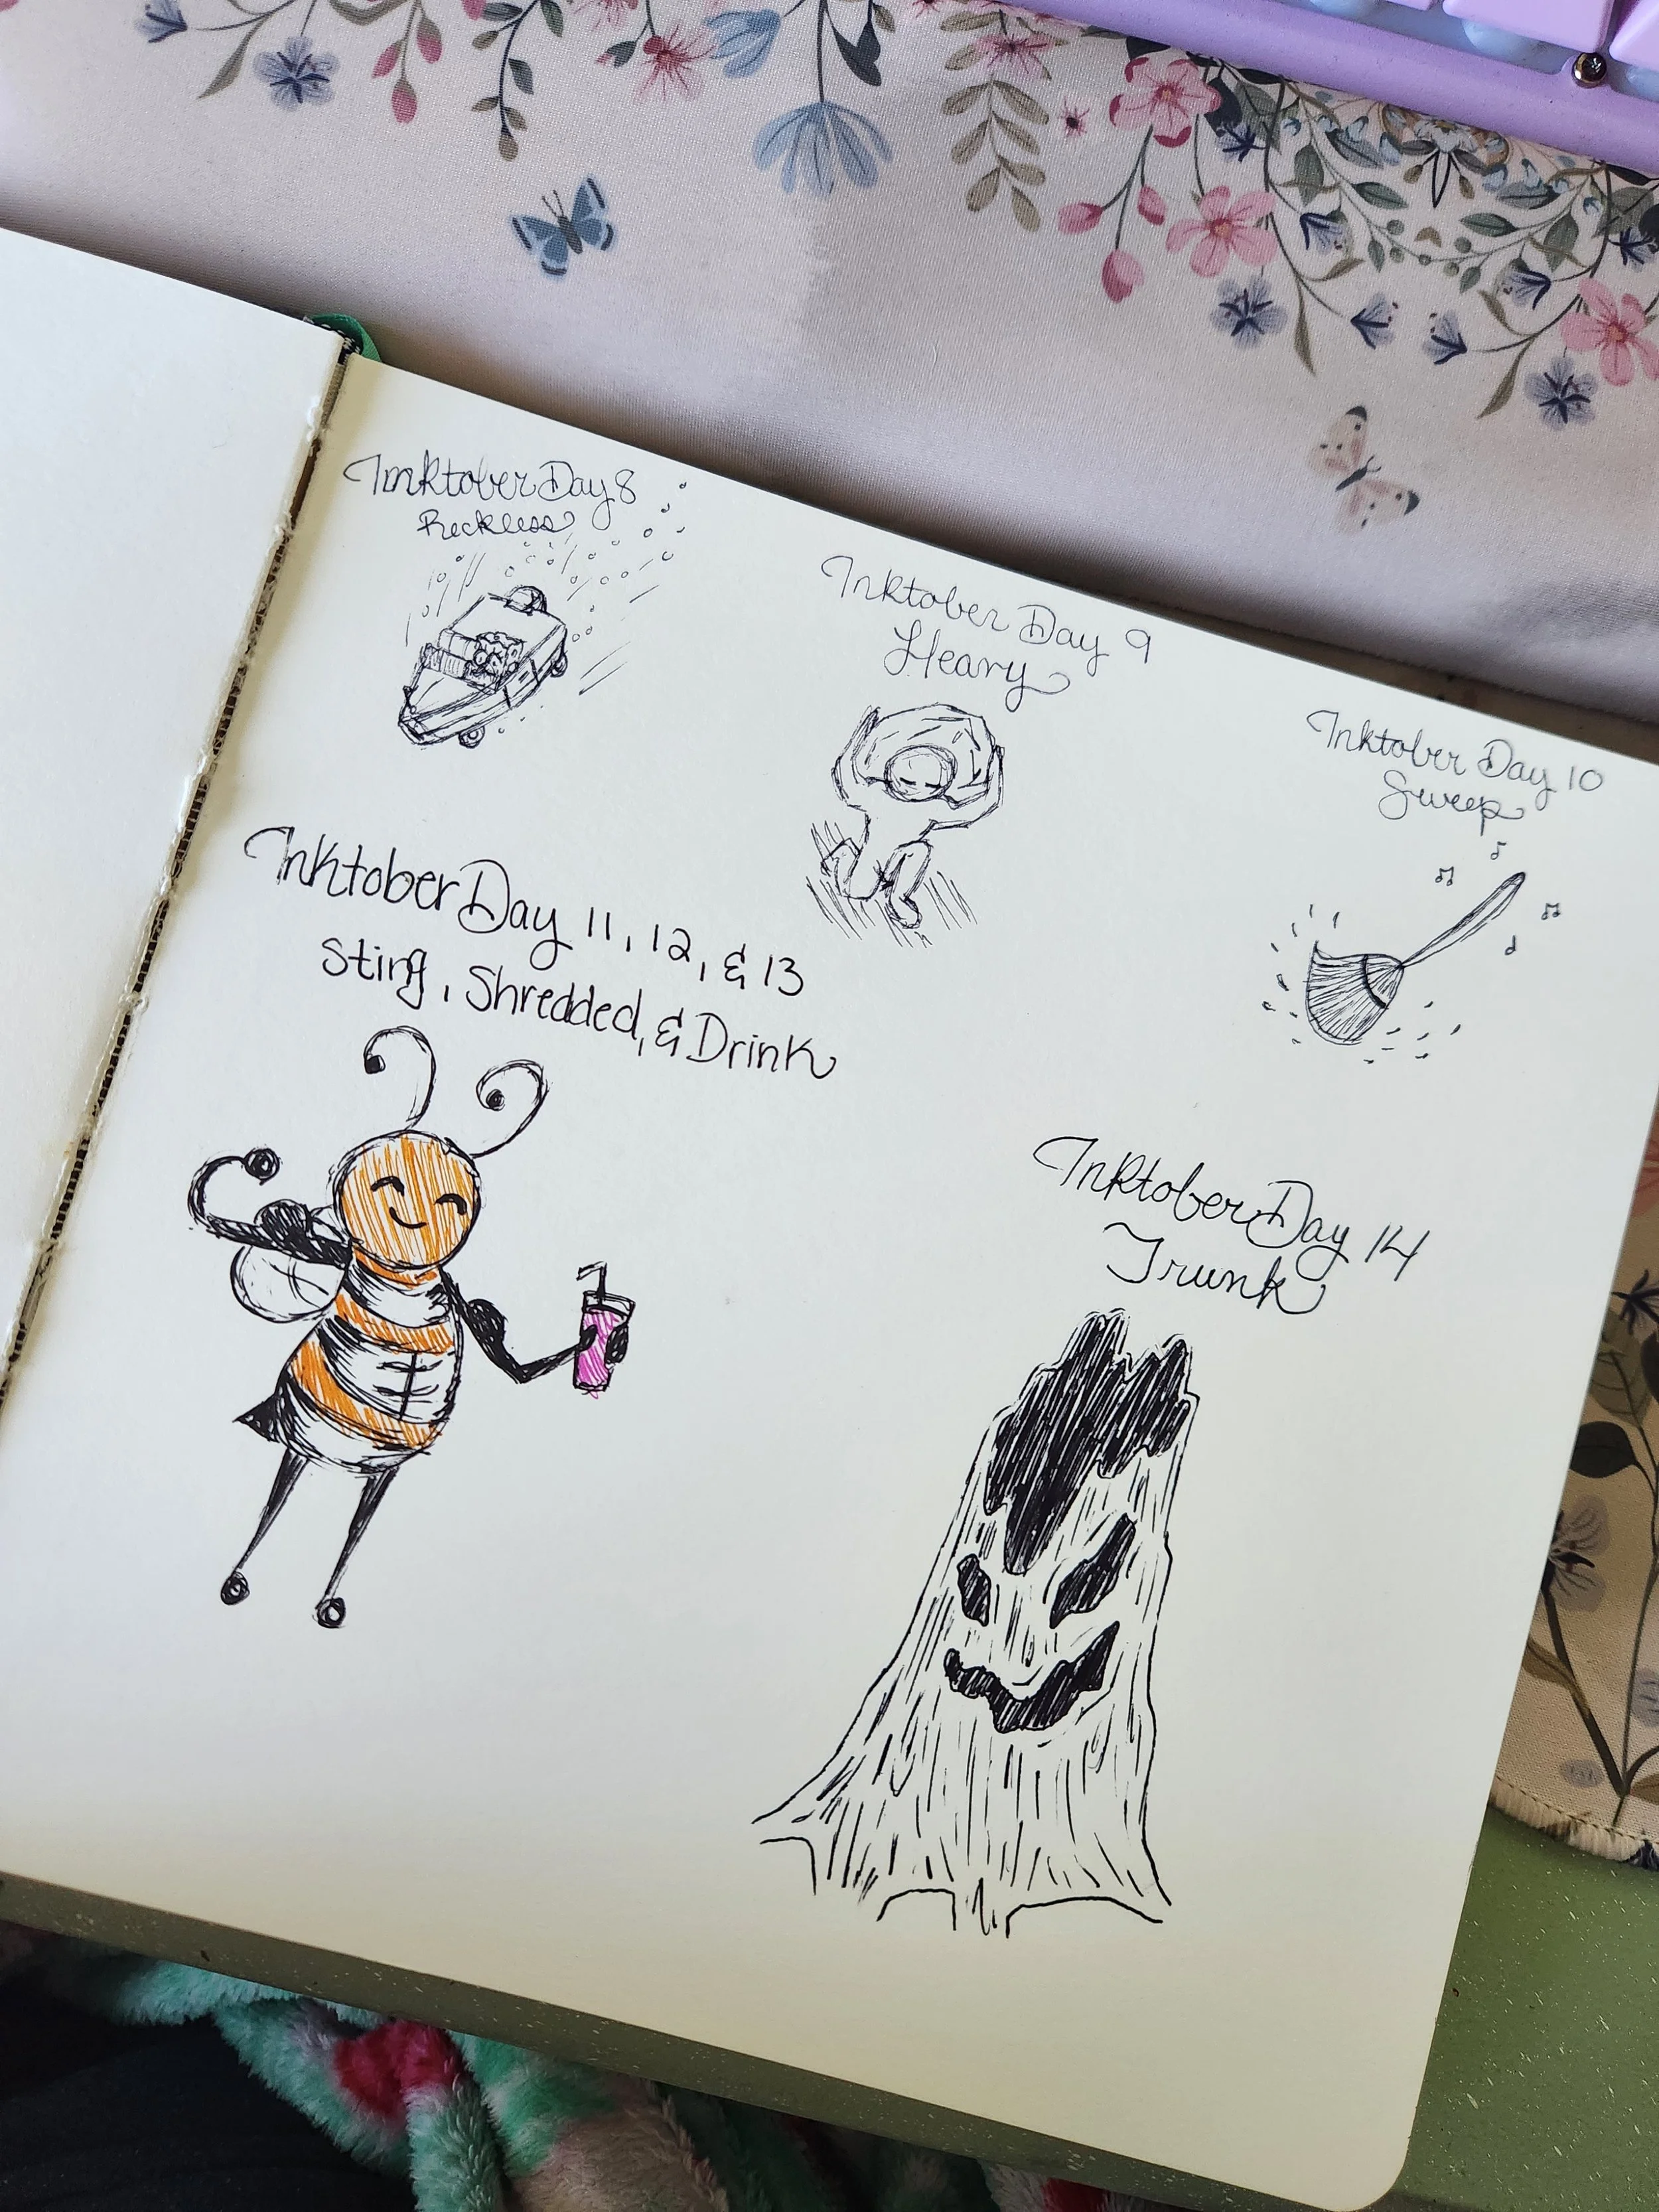 Inktober Day 8
Reckless
Inktober Day 9
Heavy
Inktober Day 10
Sweep
Inktober Day 11, 12, & 13
Sting, Shredded, & Drink
Inktober Day 14
Trunk